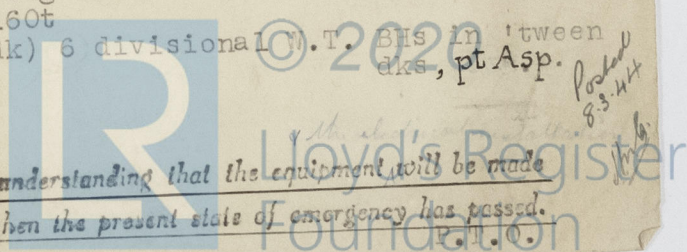 .60t
nk) 6 divisional W.T. BHs in 'tween
dks, pt Asp.
Posted
8.3.44
understanding that the equipment will be made
when the present state of emergency has passed.
P.T.O.
LR
© 2020
Lloyd's Register
Foundation